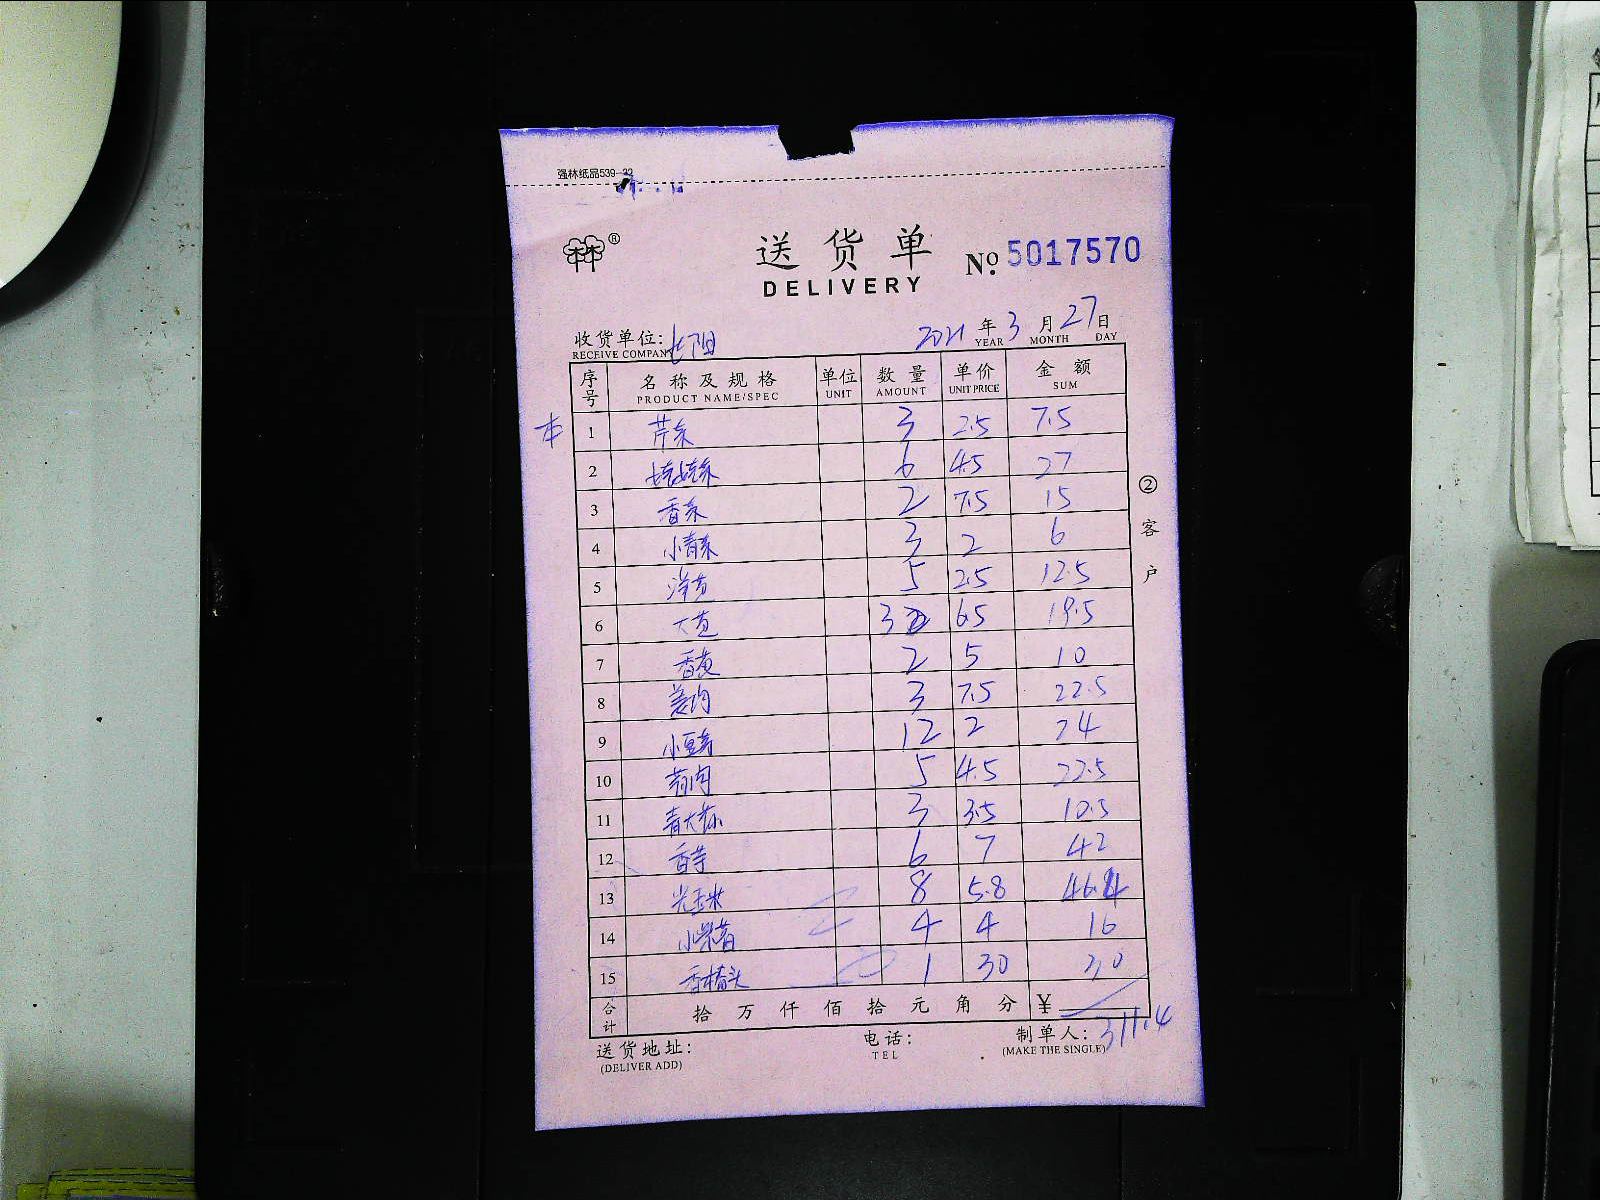 强林纸品539-32
®
送货单 № 5017570
DELIVERY
收货单位: 2021 年 3 月 27 日
RECEIVE COMPANY YEAR MONTH DAY
序号 名称及规格 单位 数量 单价 金额
PRODUCT NAME/SPEC UNIT AMOUNT UNIT PRICE SUM
1 芹菜 3 2.5 7.5
2 娃娃菜 6 4.5 27
3 香菜 2 7.5 15
4 小青菜 3 2 6
5 5 2.5 12.5
6 3 6.5 19.5
7 2 5 10
8 姜肉 3 7.5 22.5
9 小豆芽 12 2 24
10 5 4.5 22.5
11 3 3.5 10.5
12 香芋 6 7 42
13 光玉米 8 5.8 46.4
14 小紫薯 4 4 16
15 1 30 30
合计 拾万仟佰拾元角分 ¥ 311.4
送货地址: 电话: 制单人:
(DELIVER ADD) TEL (MAKE THE SINGLE)
②客户